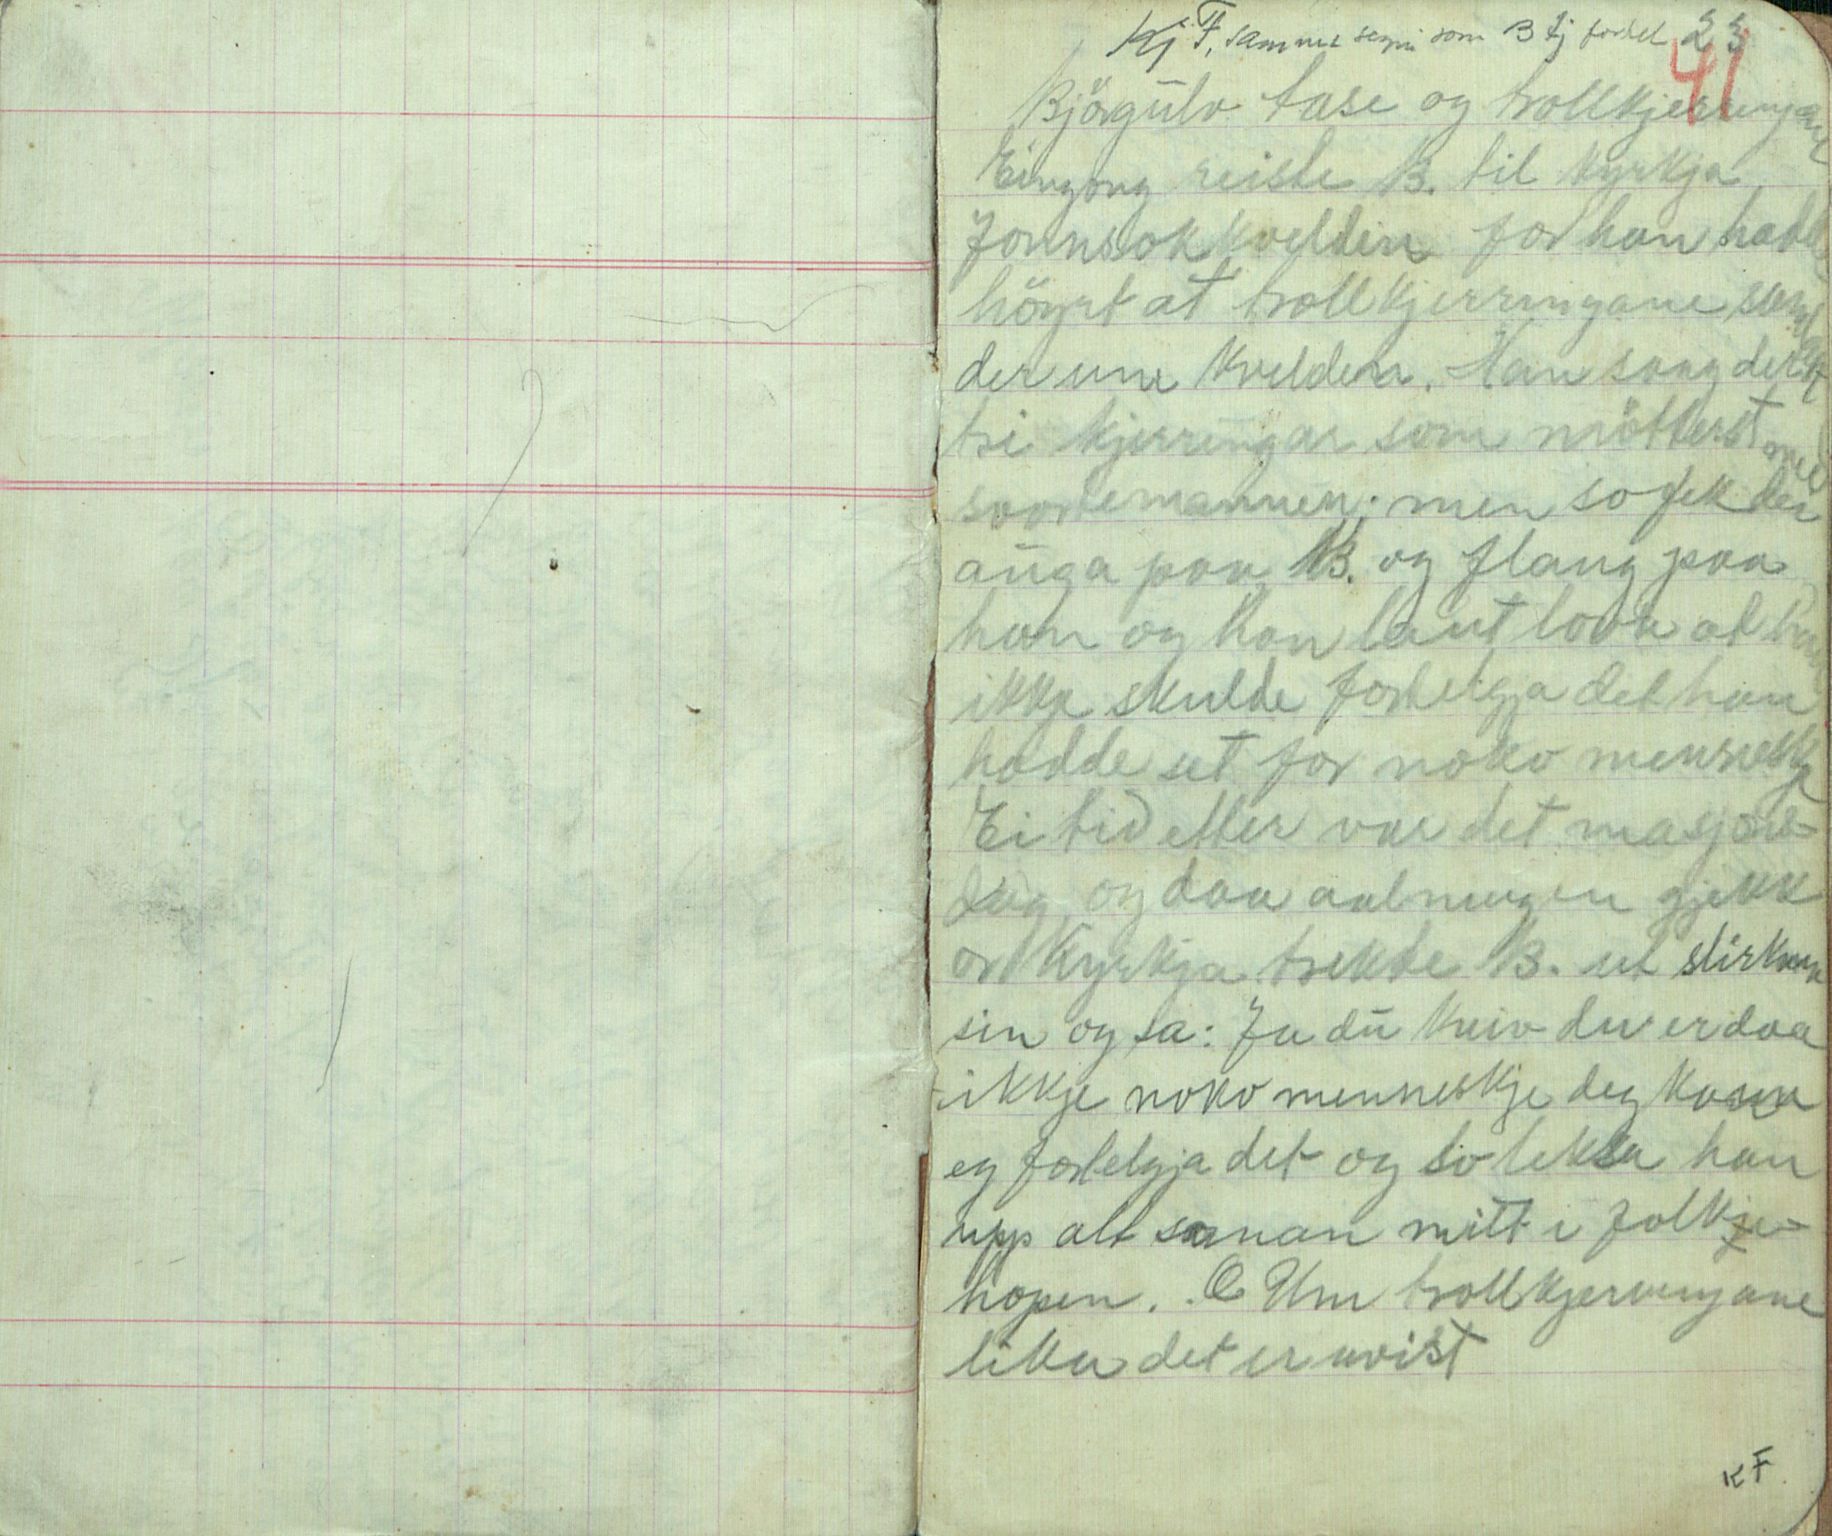 Kj F, samme segn som B Kj fortel 23
41
Bjørgulv tase og trollkjerringane
Eingong reiste B. til kyrkja
Jonnsokkvelden for han hadde
höyrt at trollkjerringane samlast
der um kvelden. Han saag der
tri kjerringar som möttest med
svartemannen; men so fek dei
auga paa B. og flaug paa
han og han laut lova at han
ikkje skulde fortelgja det han
hadde set for noko menneskje
Ei tid etter var det masjons-
dag og daa aalmugen gjekk
or kyrkja trekte B. ut slirkniven
sin og sa: Ja du kniv du er daa
ikkje noko menneskje deg kan
eg fortelgja det og so leksa han
upp alt saman mitt i folkje-
hopen. Um trollkjerringane
lika det er uvist
KF